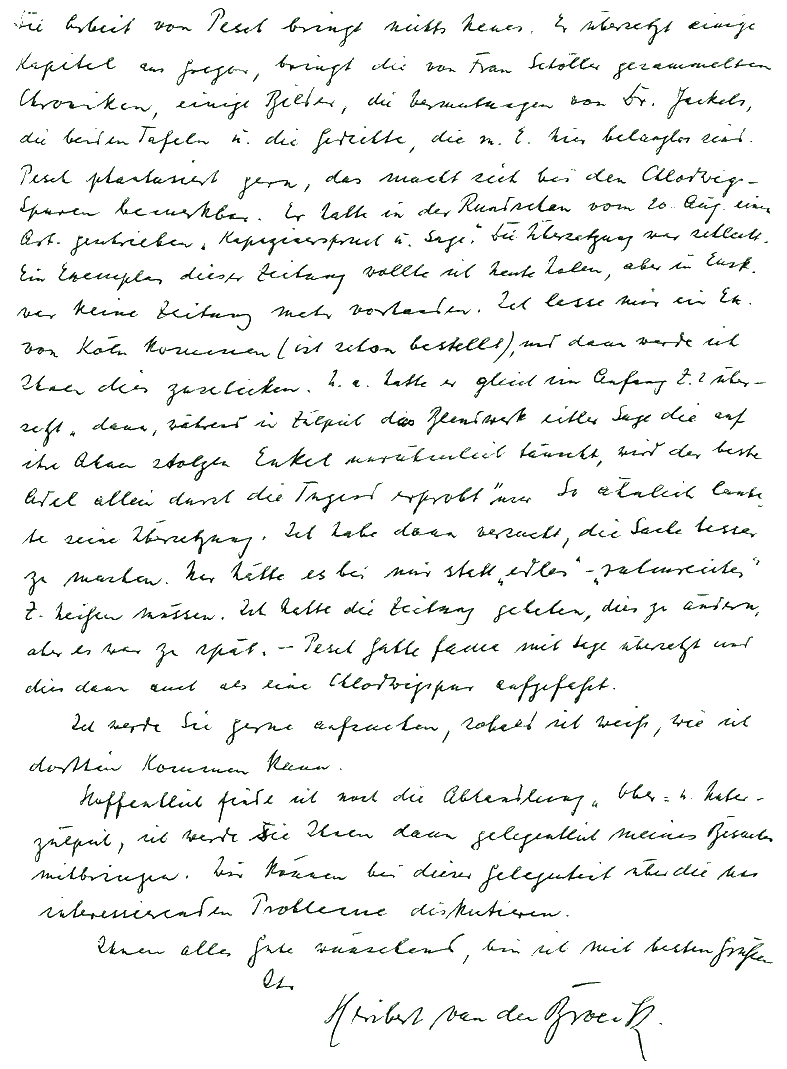 Die Arbeit von Pesch bringt nichts Neues. Er übersetzt einige
Kapitel aus Gregor, bringt die von Frau Schöller gesammelten
Chroniken, einige Bilder, die Vermutungen von Dr. Jackels,
die beiden Tafeln u. die Gedichte, die m. E. hier belanglos sind.
Pesch phantasiert gern, das macht sich bei den Chlodwig-
Spuren bemerkbar. Er hatte in der Rundschau vom 20. Aug. einen
Art. geschrieben „Kapuzinerspruch u. Sage". Die Übersetzung war schlecht.
Ein Exemplar dieser Zeitung wollte ich heute holen, aber in Eusk.
war keine Zeitung mehr vorhanden. Ich lasse mir ein Ex.
von Köln kommen (ist schon bestellt), und dann werde ich
Ihnen dies zuschicken. U. a. hatte er gleich im Anfang Z. 2 über-
setzt „ dann, während in Zülpich das Blendwerk eitler Sage die auf
ihre Ahnen stolzen Enkel unrühmlich täuscht, wird der beste
Adel allein durch die Tugend erprobt" usw. So ähnlich laute-
te seine Übersetzung. Ich habe dann versucht, die Sache besser
zu machen. Nur hätte es bei mir statt „edles" - „ruhmreiches"
Z. heißen müssen. Ich hatte die Zeitung gebeten, dies zu ändern,
aber es war zu spät. - Pesch hatte fama mit Sage übersetzt und
dies dann auch als eine Chlodwigspur aufgefaßt.
Ich werde Sie gerne aufsuchen, sobald ich weiß, wie ich
dorthin kommen kann.
Hoffentlich finde ich noch die Abhandlung „ Ober- u. Unter-
zülpich, ich werde Sie Ihnen dann gelegentlich meines Besuches
mitbringen. Wir können bei dieser Gelegenheit über die uns
interessierenden Probleme diskutieren.
Ihnen alles Gute wünschend, bin ich mit besten Grüßen
Ihr
Heribert van der Broeck.